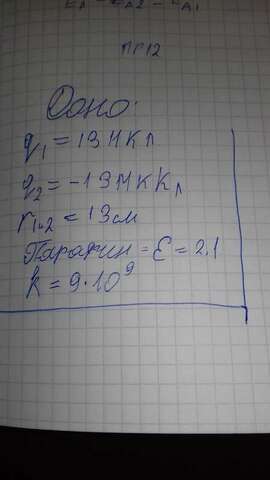 ПР12
Дано:
q₁ = 13 нКл
q₂ = -13 нКл
r₁.₂ = 13 см
Парафин - ε = 2.1
k = 9·10⁹